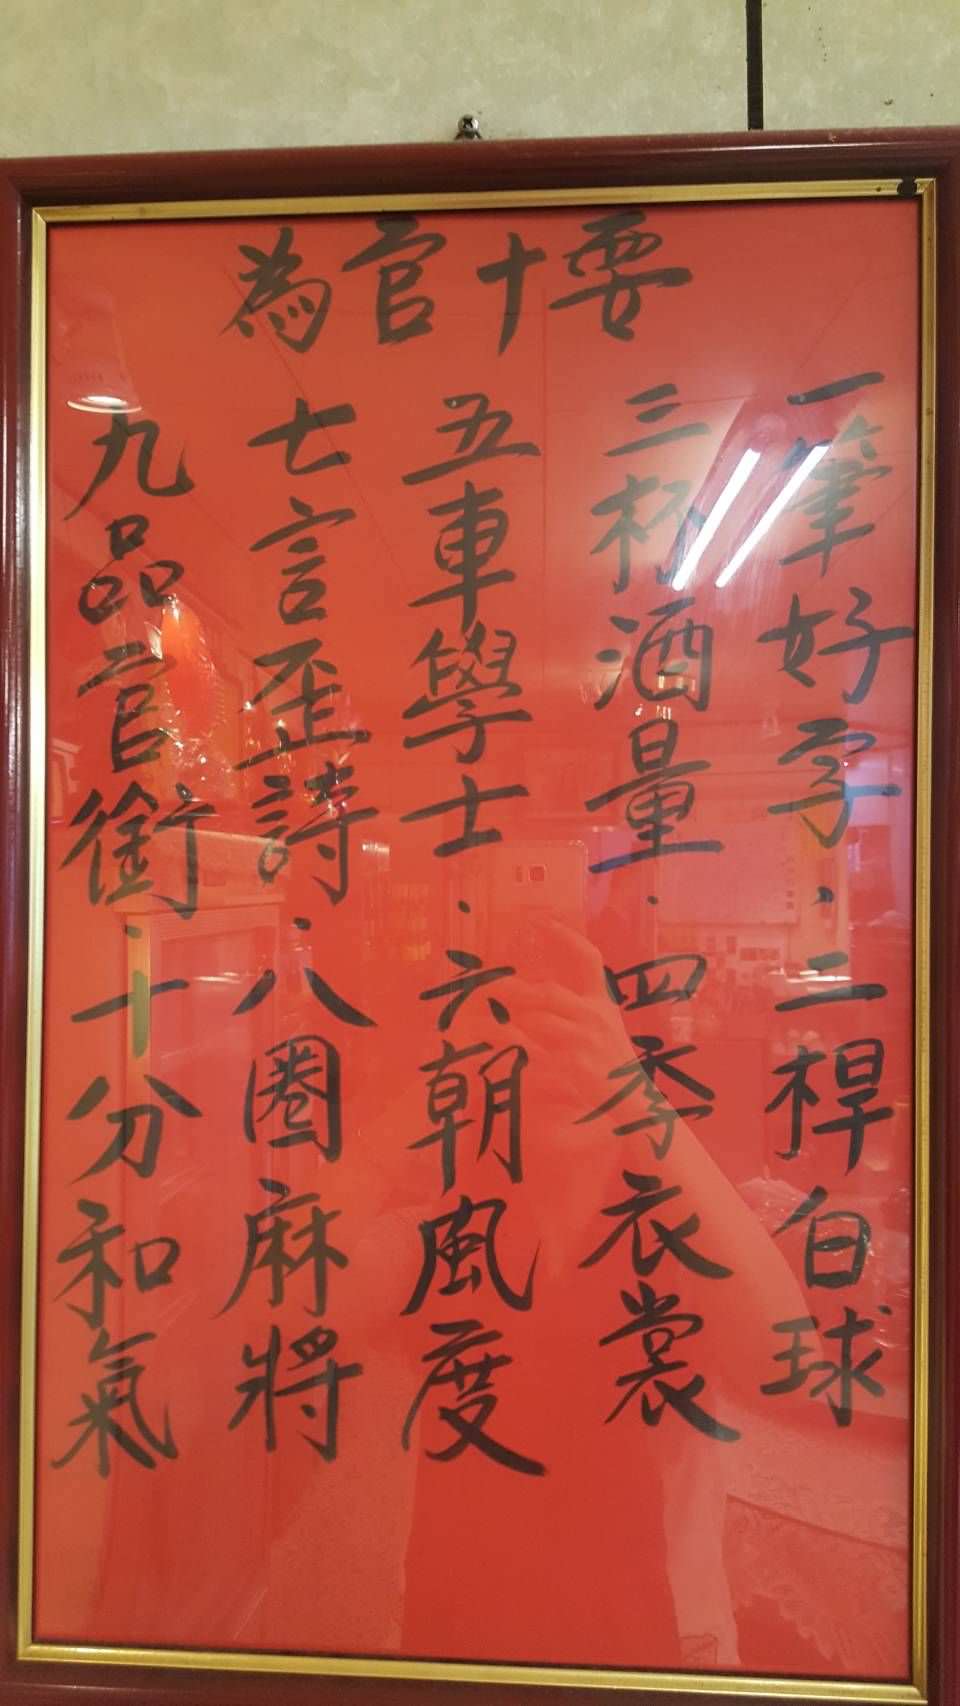 為官十要
一筆好字．二桿白球
三杯酒量．四季衣裳
五車學士．六朝風度
七言歪詩．八圈麻將
九品官銜．十分和氣